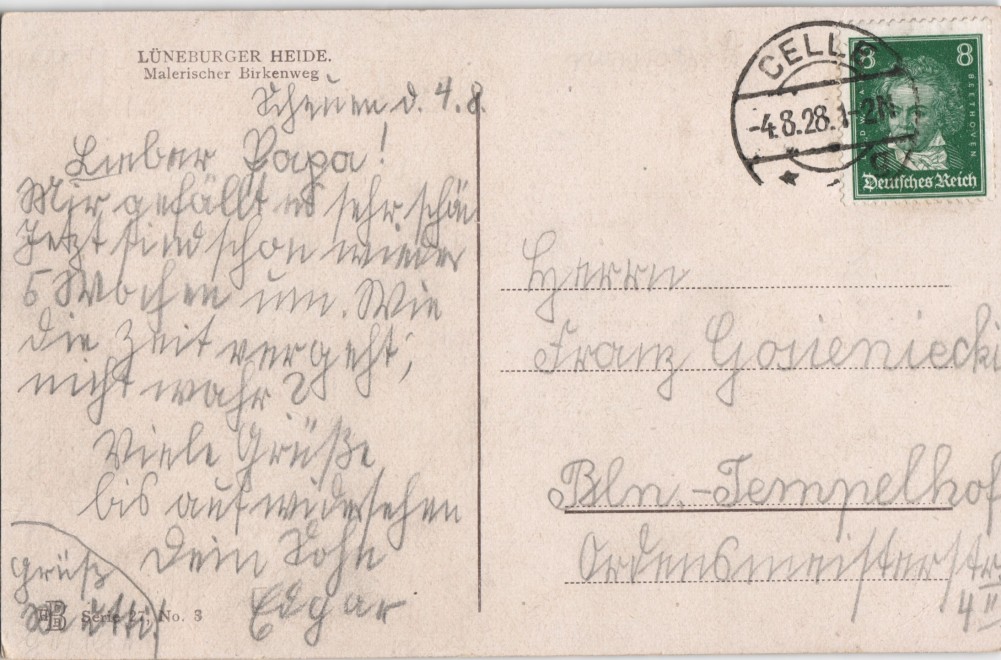 LÜNEBURGER HEIDE.
Malerischer Birkenweg
Scheuen d. 4.8.
Lieber Papa!
Mir gefällt es sehr schön
Jetzt sind schon wieder
5 Wochen um. Wie
die Zeit vergeht,
nicht wahr?
Viele Grüße
bis auf widersehen
Dein Sohn
Edgar
Grüß
Mutti!
Serie 27, No. 3
CELLE
-4.8.28.1-2N
8 8
BEETHOVEN
Deutsches Reich
Herrn
Franz
Bln.-Tempelhof
Ordensmeisterstr
4 II